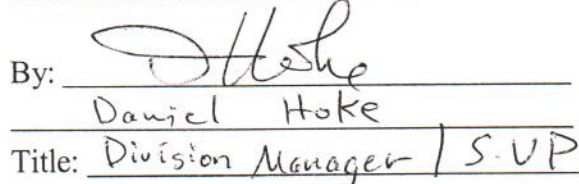 By: DHoke
Daniel Hoke
Title: Division Manager / S.VP